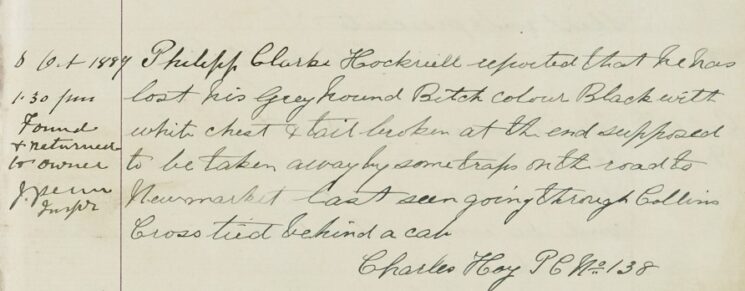 6 Oct 1889
1.30 pm
Found
& returned
to owner
J. Penn
Inspr
Philipp Clarke Hockriell reported that he has
lost his Grey hound Bitch colour Black with
white chest & tail broken at the end supposed
to be taken away by some traps on the road to
Newmarket last seen going through Collins
Cross tied behind a cab
Charles Hoy PC No. 138